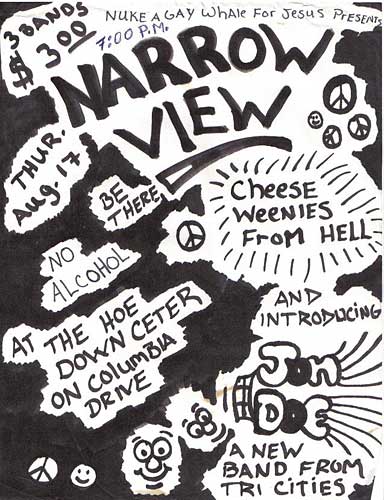 NUKE A GAY WHALE FOR JESUS PRESENTS
3 BANDS
$ 3 00
7:00 P.M.
NARROW
VIEW
THUR.
Aug. 17
BE
THERE
CHEESE
WEENIES
FROM HELL
NO
ALCOHOL
AND
INTRODUCING
AT THE HOE
DOWN CETER
ON COLUMBIA
DRIVE
JON
DOE
A NEW
BAND FROM
TRI CITIES